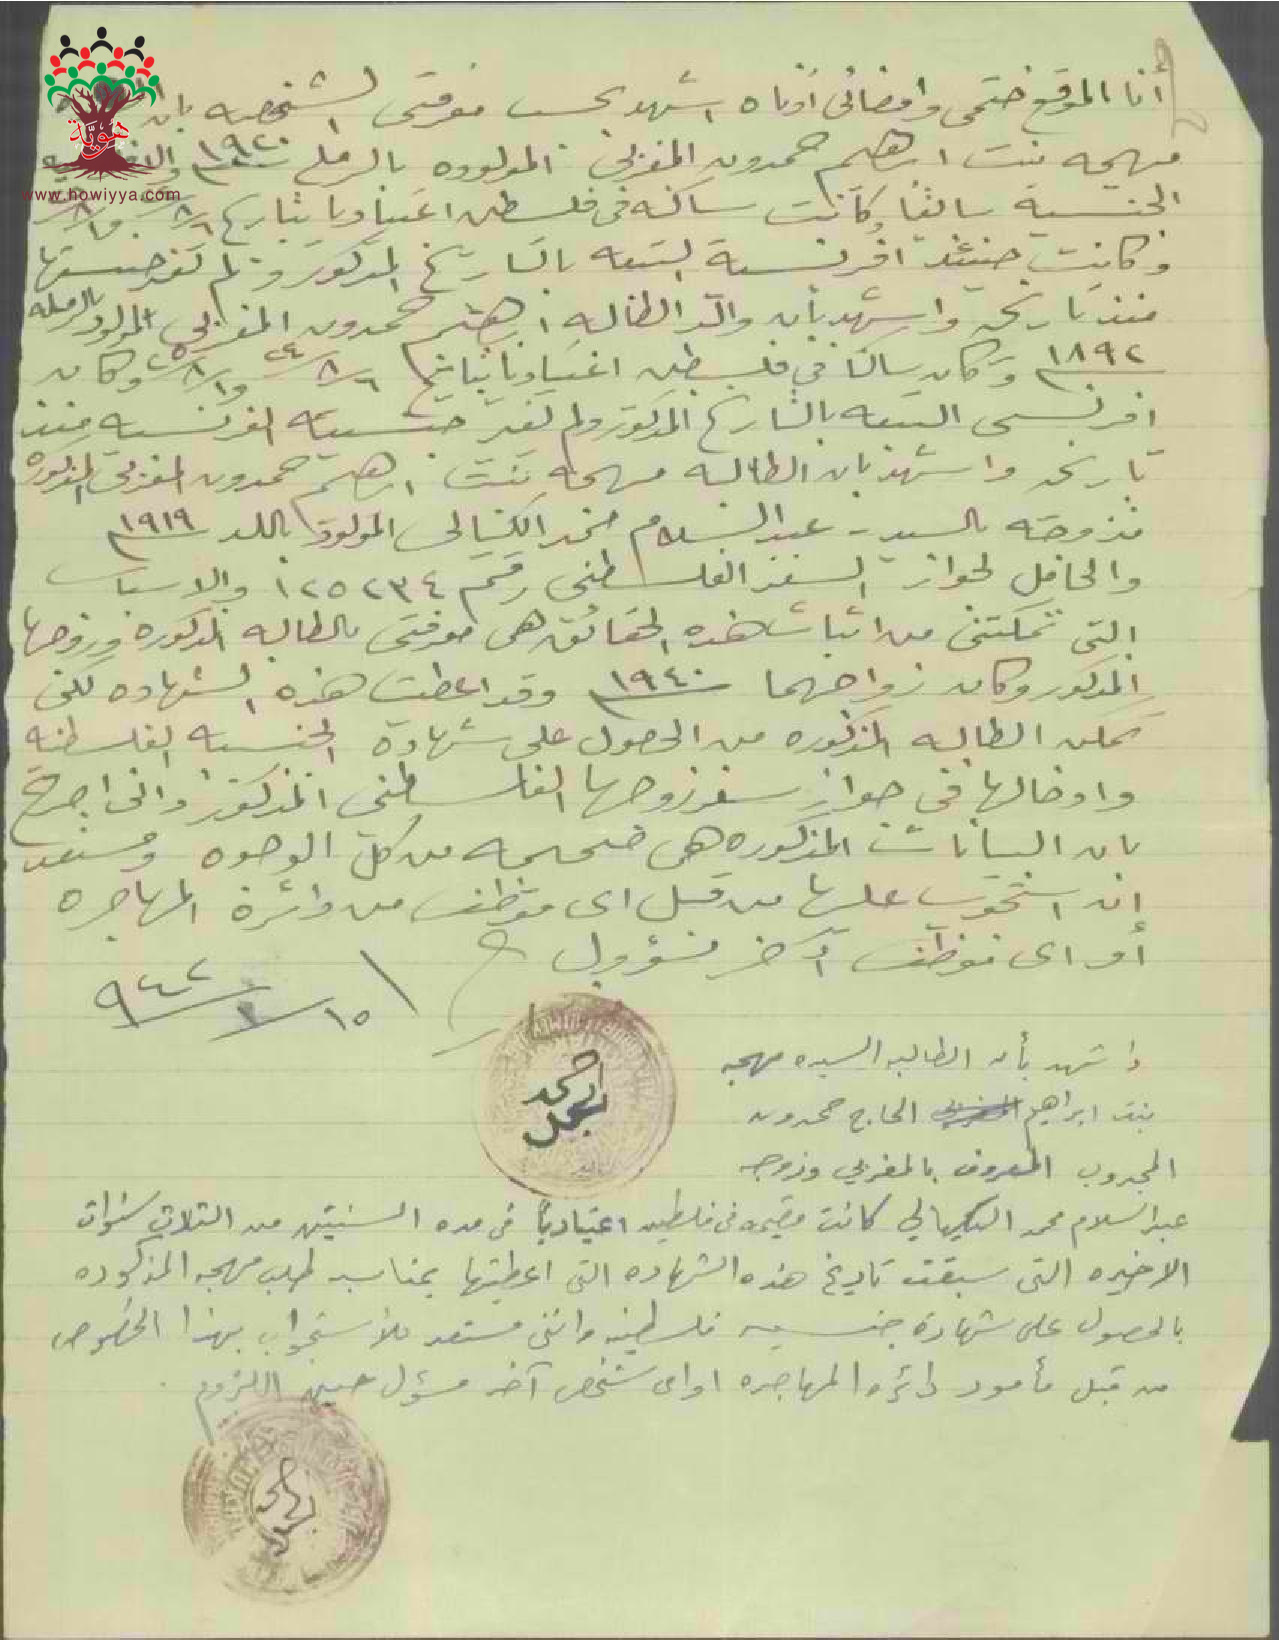 أنا الموقع ختمي وامضائي أدناه اشهد بحسب معرفتي الشخصيه بان
مهجه بنت ابرهيم حمدون المغربي المولوده بالرمله ١٩٢٠م
هويّة
www.howiyya.com
الجنسية سالفًا وكانت ساكنه في فلسطين اعتياديا بتاريخ ٨/٦
وكانت حينئذ افرنسية التبعه بالتاريخ المذكور ولم تغير جنسيتها
منذ تاريخه واشهد بأن والد الطالبه ابرهيم حمدون المغربي المولود بالرمله
١٨٩٢م وكان ساكنا في فلسطين اعتياديا بتاريخ ٢٤/٨/٦ و٢٥/٨/١ وكان
افرنسي التبعه بالتاريخ المذكور ولم تغير جنسيته الفرنسيه منذ
تاريخه واشهد بان الطالبه مهجه بنت ابرهيم حمدون المغربي المذكوره
متزوجه بالسيد عبد السلام محمد الكيالي المولود باللد ١٩١٩م
والحامل لجواز السفر الفلسطيني رقم ١٢٥٢٣٤ والاسباب
التي تمكنني من اثبات هذه الحقائق هي معرفتي بالطالبه المذكوره وزوجها
المذكور وكان زواجهما ١٩٤٠م وقد اعطيت هذه الشهاده لكي
تمكن الطالبه المذكوره من الحصول على شهادة الجنسيه الفلسطنيه
وادخالها في جواز سفر زوجها الفلسطيني المذكور واني اصرح
بان البيانات المذكوره هي صحيحه من كل الوجوه ومستعد
ان استجوب عليها من قبل اي موظف من دائرة المهاجره
أو اي موظف آخر مسؤول
١٥/ /٩٤٢
واشهد بأن الطالبه السيده مهجه
بنت ابراهيم الحاج حمدون
المجدوب المعروف بالمغربي وزوجه
عبد السلام محمد الكيالي كانت مقيمه في فلسطين اعتياديًا في مده السنيتين من الثلاث سنوات
الاخيره التي سبقت تاريخ هذه الشهاده التي اعطيتها بمناسبه طلب مهجه المذكوره
بالحصول على شهادة جنسيه فلسطينيه وانني مستعد للاستجواب بهذا الخصوص
من قبل مأمور دائره المهاجره او اي شخص آخر مسؤل حين اللزوم .